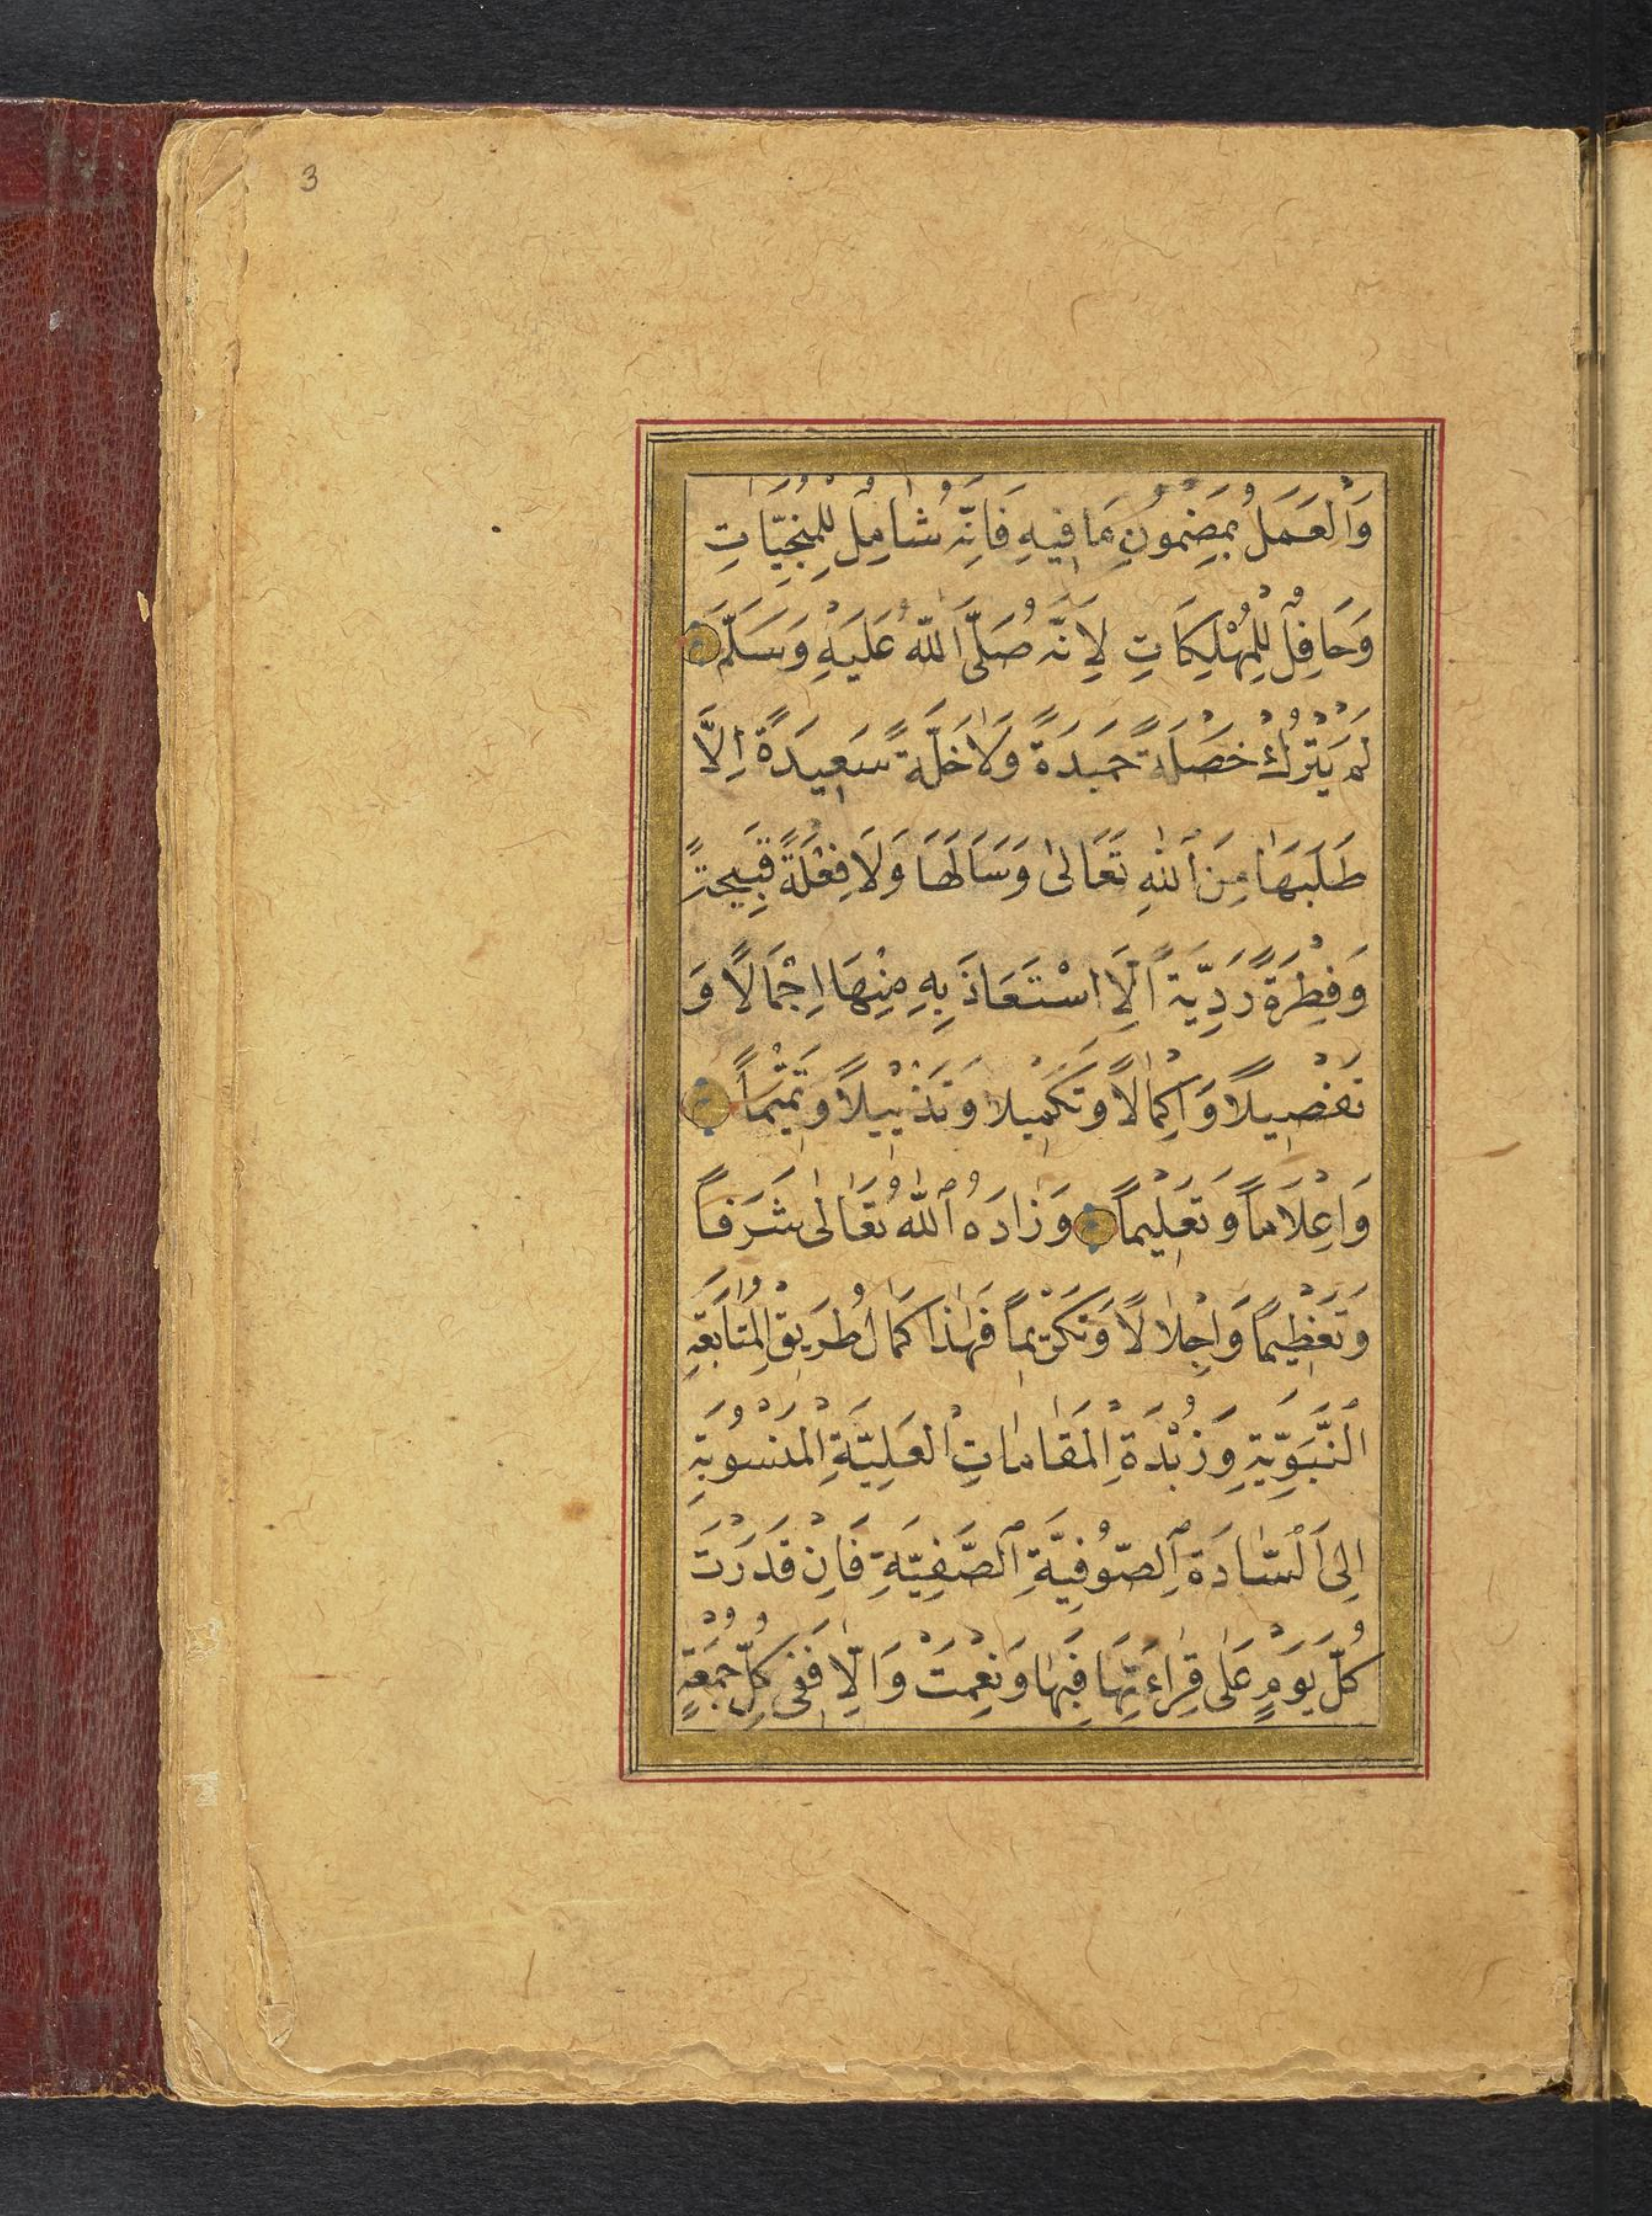 3
وَالْعَمَلُ بِمَضْمُونِ مَا فِيهِ فَاِنَّهُ شَامِلٌ لِلْمُنْجِيَاتِ
وَحَافِلٌ لِلْمُهْلِكَاتِ لِاَنَّهُ صَلَّى اللّٰهُ عَلَيْهِ وَسَلَّمَ
لَمْ يَتْرُكْ خَصْلَةً حَمِيدَةً وَلَا خَلَّةً سَعِيدَةً اِلَّا
طَلَبَهَا مِنَ اللّٰهِ تَعَالٰى وَسَاَلَهَا وَلَا فِعْلَةً قَبِيحَةً
وَفِطْرَةً رَدِيَّةً اِلَّا اسْتَعَاذَ بِهِ مِنْهَا اِجْمَالًا وَ
تَفْصِيلًا وَاِكْمَالًا وَتَكْمِيلًا وَتَذْيِيلًا وَتَتْمِيمًا
وَاِعْلَامًا وَتَعْلِيمًا وَزَادَهُ اللّٰهُ تَعَالٰى شَرَفًا
وَتَعْظِيمًا وَاِجْلَالًا وَتَكْرِيمًا فَهٰذَا كَمَالُ طَرِيقِ الْمُتَابَعَةِ
النَّبَوِيَّةِ وَزُبْدَةِ الْمَقَامَاتِ الْعَلِيَّةِ الْمَنْسُوبَةِ
اِلَى السَّادَةِ الصُّوفِيَّةِ الصَّفِيَّةِ فَاِنْ قَدَرْتَ
كُلَّ يَوْمٍ عَلٰى قِرَاءَتِهَا فَبِهَا وَنِعْمَتْ وَاِلَّا فَفِى كُلِّ جُمُعَةٍ